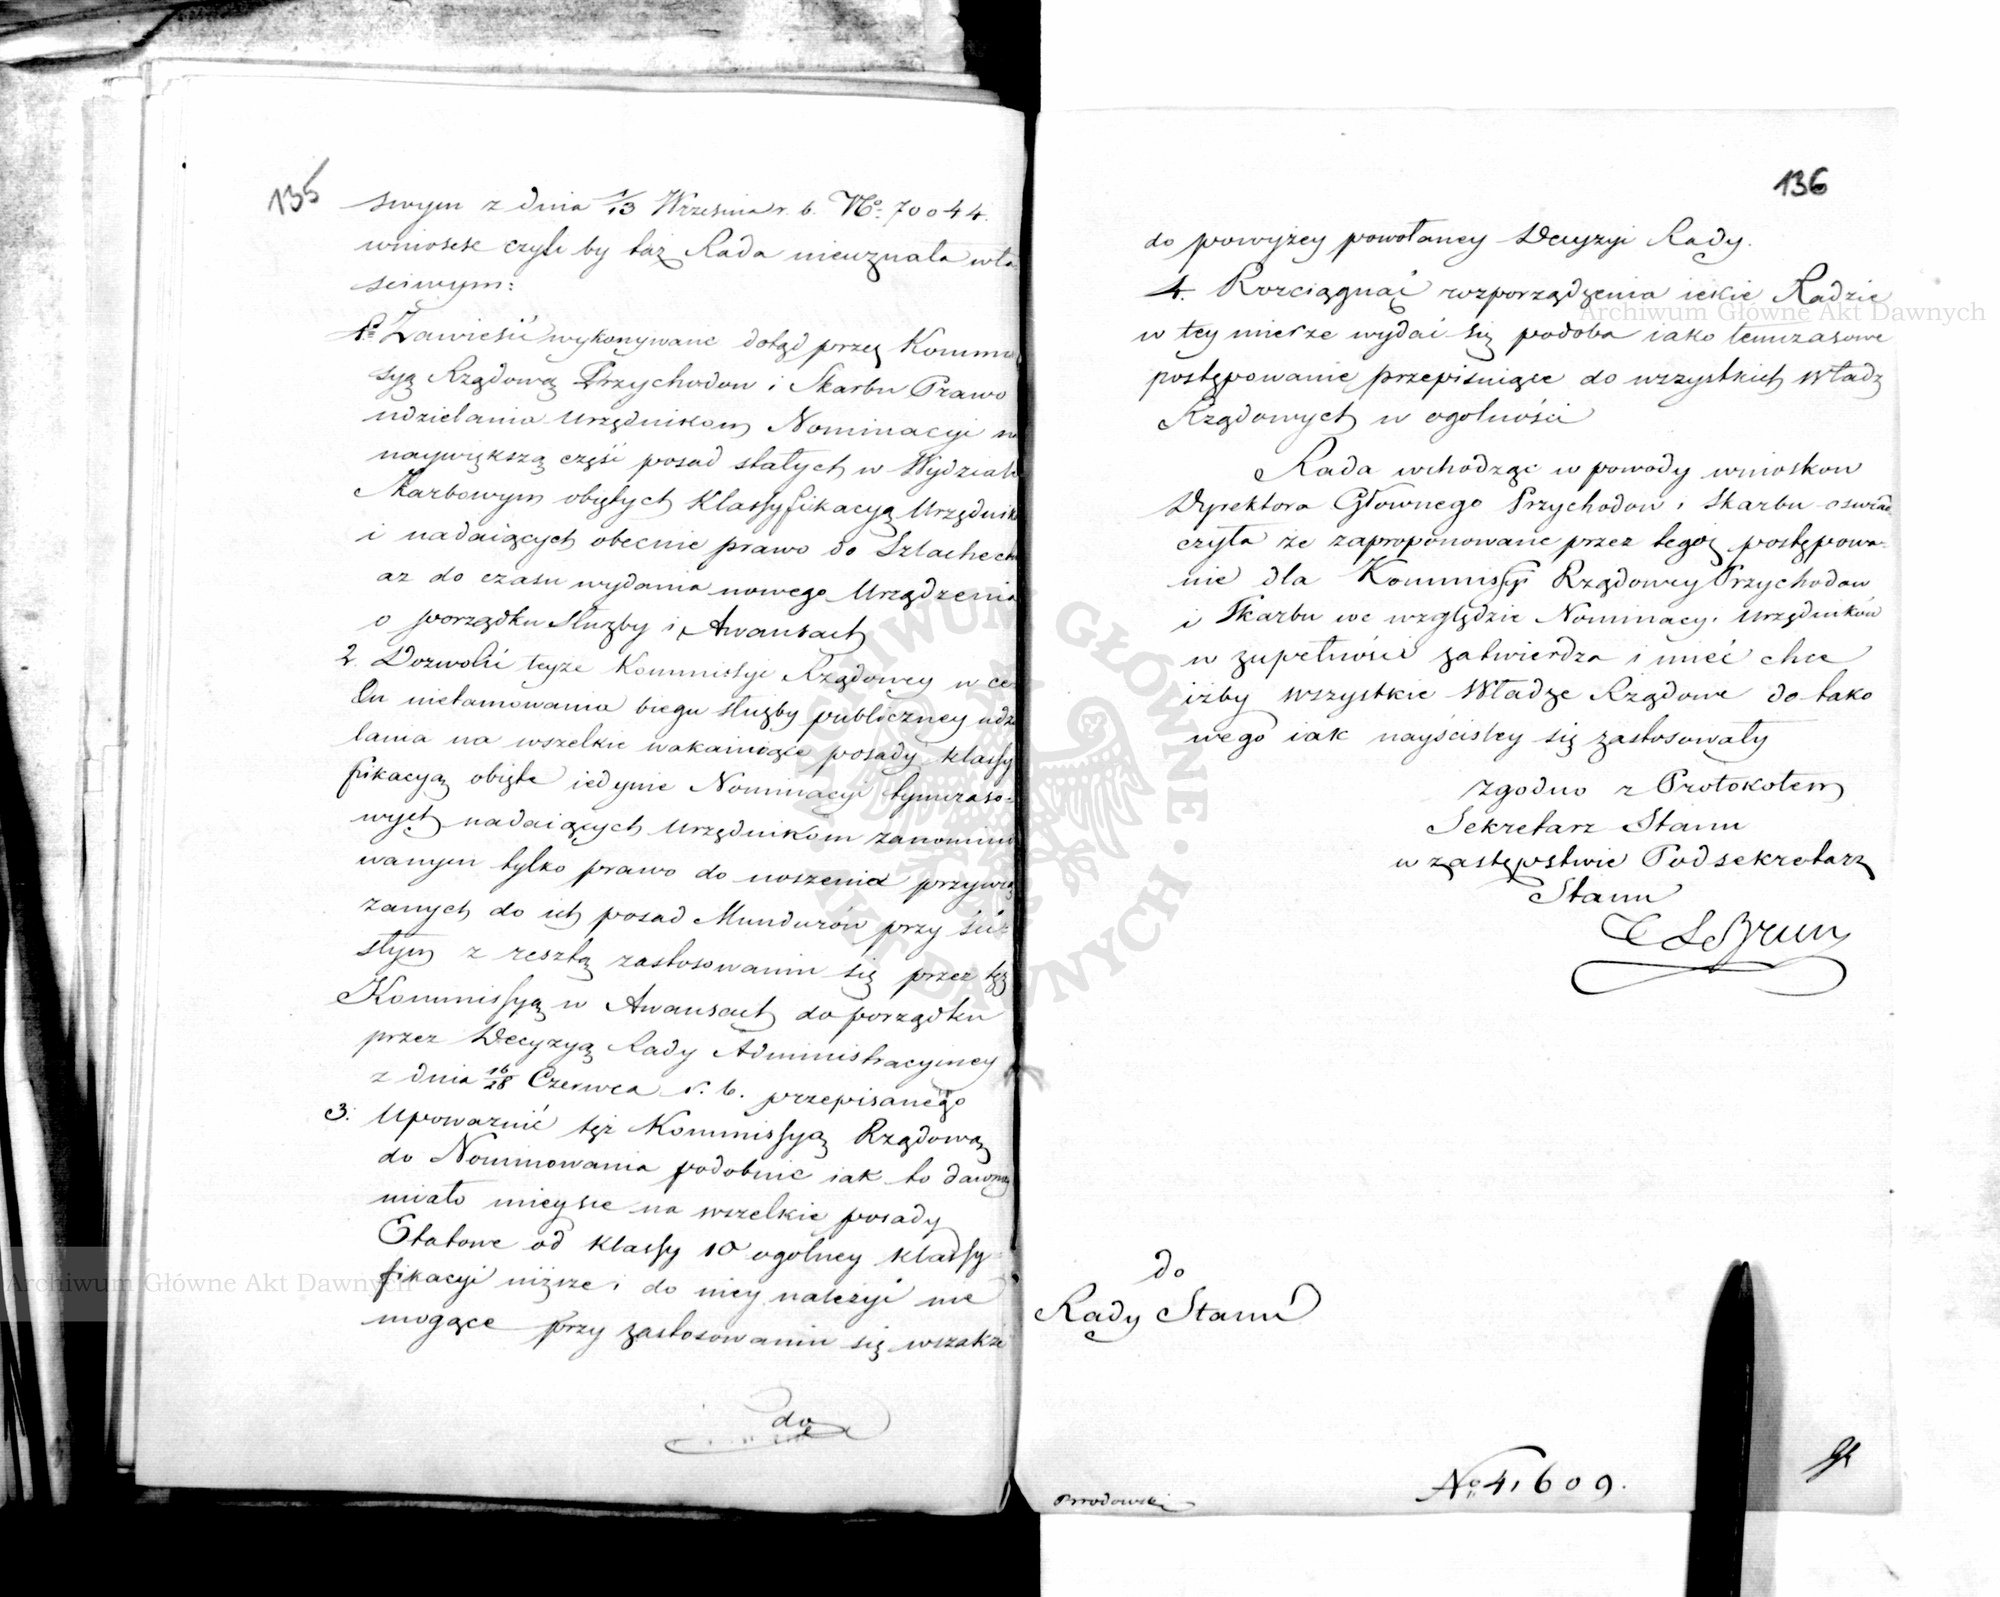 135
swym z dnia 1/13 Września r. b. No: 70044.
wniosek czyli by taż Rada nieuznała wła-
sciwym:
1o Zawiesić wykonywane dotąd przez Kommis
syą Rządową Przychodow i Skarbu Prawo
udzielania Urzędnikom Nominacyi na
naywiększą część posad stałych w Wydziale
Skarbowym obiętych Klassyfikacyą Urzędnik
i nadaiących obecnie prawo do Szlachect
az do czasu wydania nowego Urządzenia
o porządku Służby i Awansach
2. Dozwolić teyże Kommissyi Rządowey w ce-
lu nietamowania biegu służby publiczney udzie
lania na wszelkie wakuiące posady klassy
fikacyą obięte iedynie Nominacyi tymczaso-
wych nadaiących Urzędnikom zanomino
wanym tylko prawo do noszenia przywią
zanych do ich posad Mundurów przy ści-
słym z resztą zastosowaniu się przez tęż
Kommissyą w Awansach do porządku
przez Decyzyą Rady Administracyiney
z dnia 16/28 Czerwca r. b. przepisanego
3. Upoważnić też Kommissyą Rządową
do Nominowania podobnie iak to dawniey
miało mieysce na wszelkie posady
Etatowe od klassy 10 ogolney klassy-
fikacyi niższe i do niey należyć nie
mogące przy zastosowaniu się wszakże
do
136
do powyżey powołaney Decyzyi Rady.
4. Rozciągnąć rozporządzenia iekie Radzie
w tey mierze wydać się podoba iako temczasowe
postępowanie przepisuiące do wszystkich Władz
Rządowych w ogolności
Rada wchodząc w powody wnioskow
Dyrektora Głownego Przychodow i Skarbu oswiad
czyła że zaproponowane przez tegoż postępowa-
nie dla Kommissyi Rządowey Przychodow
i Skarbu we względzie Nominacyi Urzędników
w zupełności zatwierdza i mieć chce
iżby wszystkie Władze Rządowe do tako
wego iak nayściśley się zastosowały
Zgodno z Protokołem
Sekretarz Stanu
w zastępstwie Podsekretarz
Stanu
LeBrun
do
Rady Stanu
No 41609.
Brodowski
Archiwum Główne Akt Dawnych
Archiwum Główne Akt Dawnych
ARCHIWUM GŁÓWNE AKT DAWNYCH